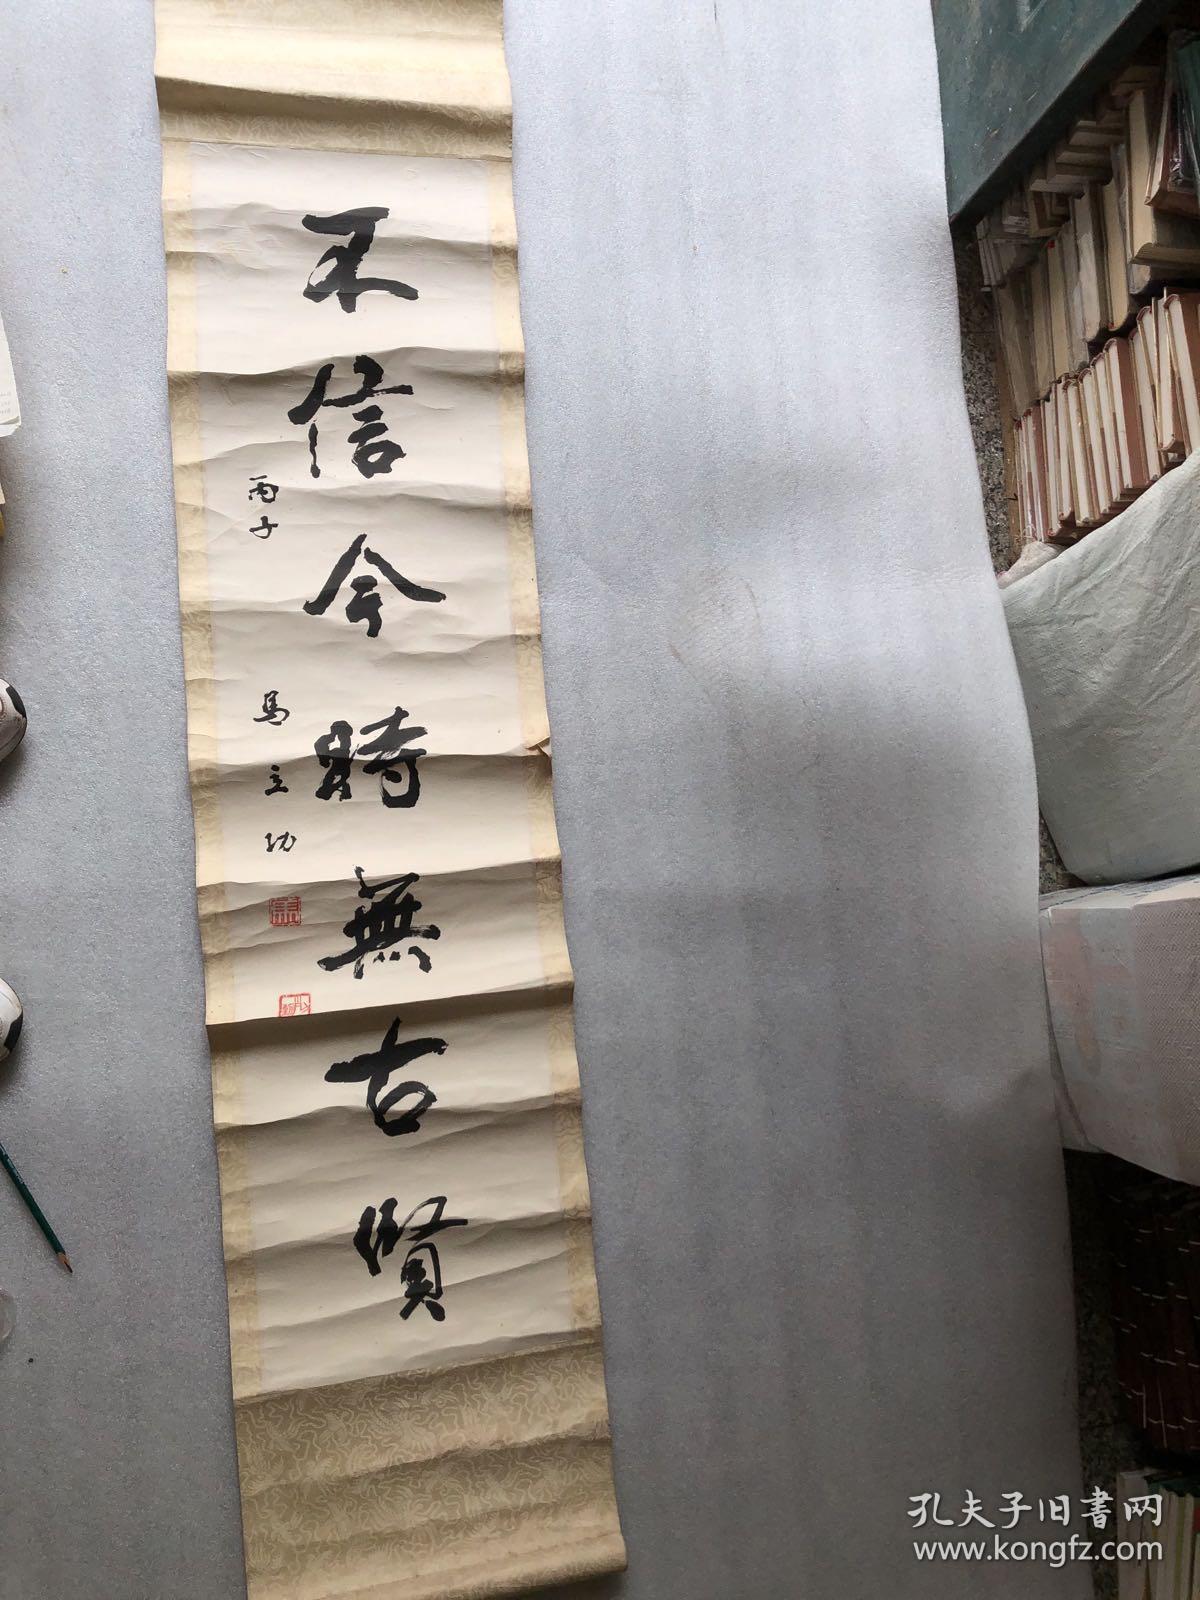 不信今時無古賢
丙子
馬立
孔夫子旧書网
www.kongfz.com